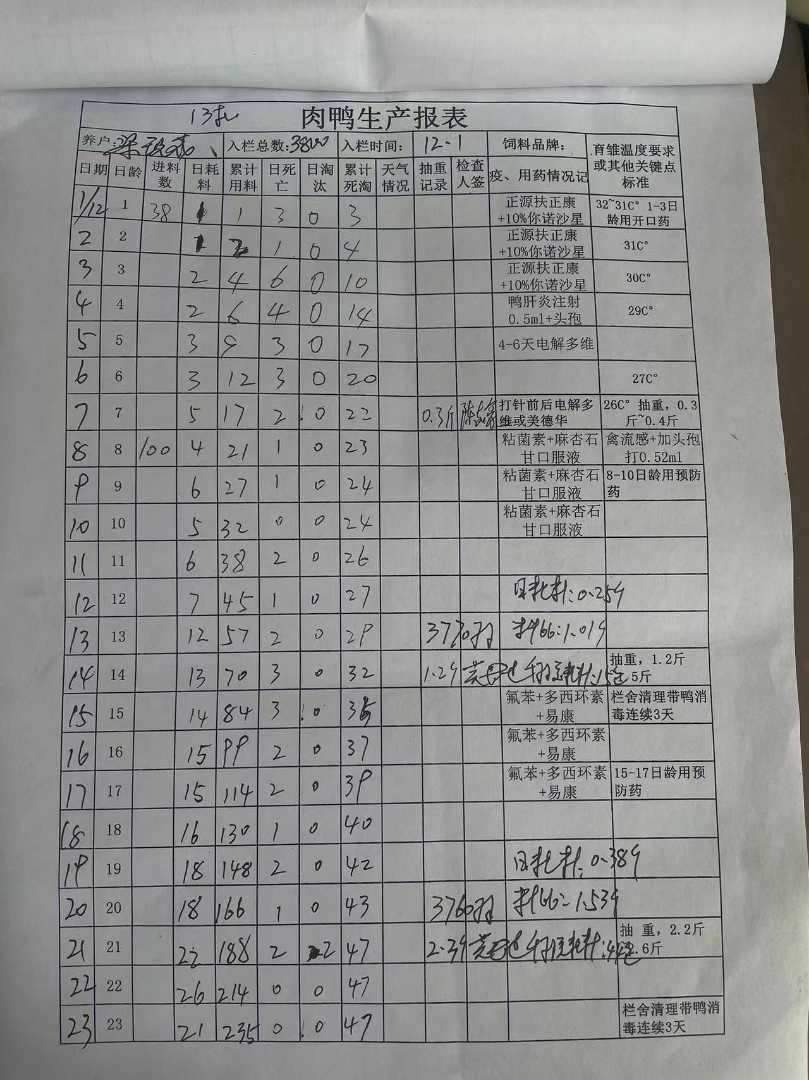 13批 肉鸭生产报表
养户: 入栏总数:3800 入栏时间: 12-1 饲料品牌: 育雏温度要求或其他关键点标准
日期 日龄 进料数 日耗料 累计用料 日死亡 日淘汰 累计死淘 天气情况 抽重记录 检查人签 疫、用药情况记
1/12 1 38 1 1 3 0 3 正源扶正康+10%你诺沙星 32~31C° 1-3日龄用开口药
2 2 1 2 1 0 4 正源扶正康+10%你诺沙星 31C°
3 3 2 4 6 0 10 正源扶正康+10%你诺沙星 30C°
4 4 2 6 4 0 14 鸭肝炎注射0.5ml+头孢 29C°
5 5 3 9 3 0 17 4-6天电解多维
6 6 3 12 3 0 20 27C°
7 7 5 17 2 0 22 0.3斤 打针前后电解多维或美德华 26C° 抽重,0.3斤~0.4斤
8 8 100 4 21 1 0 23 粘菌素+麻杏石甘口服液 禽流感+加头孢打0.52ml
9 9 6 27 1 0 24 粘菌素+麻杏石甘口服液 8-10日龄用预防药
10 10 5 32 0 0 24 粘菌素+麻杏石甘口服液
11 11 6 38 2 0 26
12 12 7 45 1 0 27 日耗料:0.259
13 13 12 57 2 0 29 3770羽 料66:1.019
14 14 13 70 3 0 32 1.29 抽重,1.2斤 5斤
15 15 14 84 3 0 35 氟苯+多西环素+易康 栏舍清理带鸭消毒连续3天
16 16 15 99 2 0 37 氟苯+多西环素+易康
17 17 15 114 2 0 39 氟苯+多西环素+易康 15-17日龄用预防药
18 18 16 130 1 0 40
19 19 18 148 2 0 42 日耗料:0.389
20 20 18 166 1 0 43 3760羽 料66=1.539
21 21 22 188 2 2 47 2.39 抽 重,2.2斤 .6斤
22 22 26 214 0 0 47
23 23 21 235 0 0 47 栏舍清理带鸭消毒连续3天